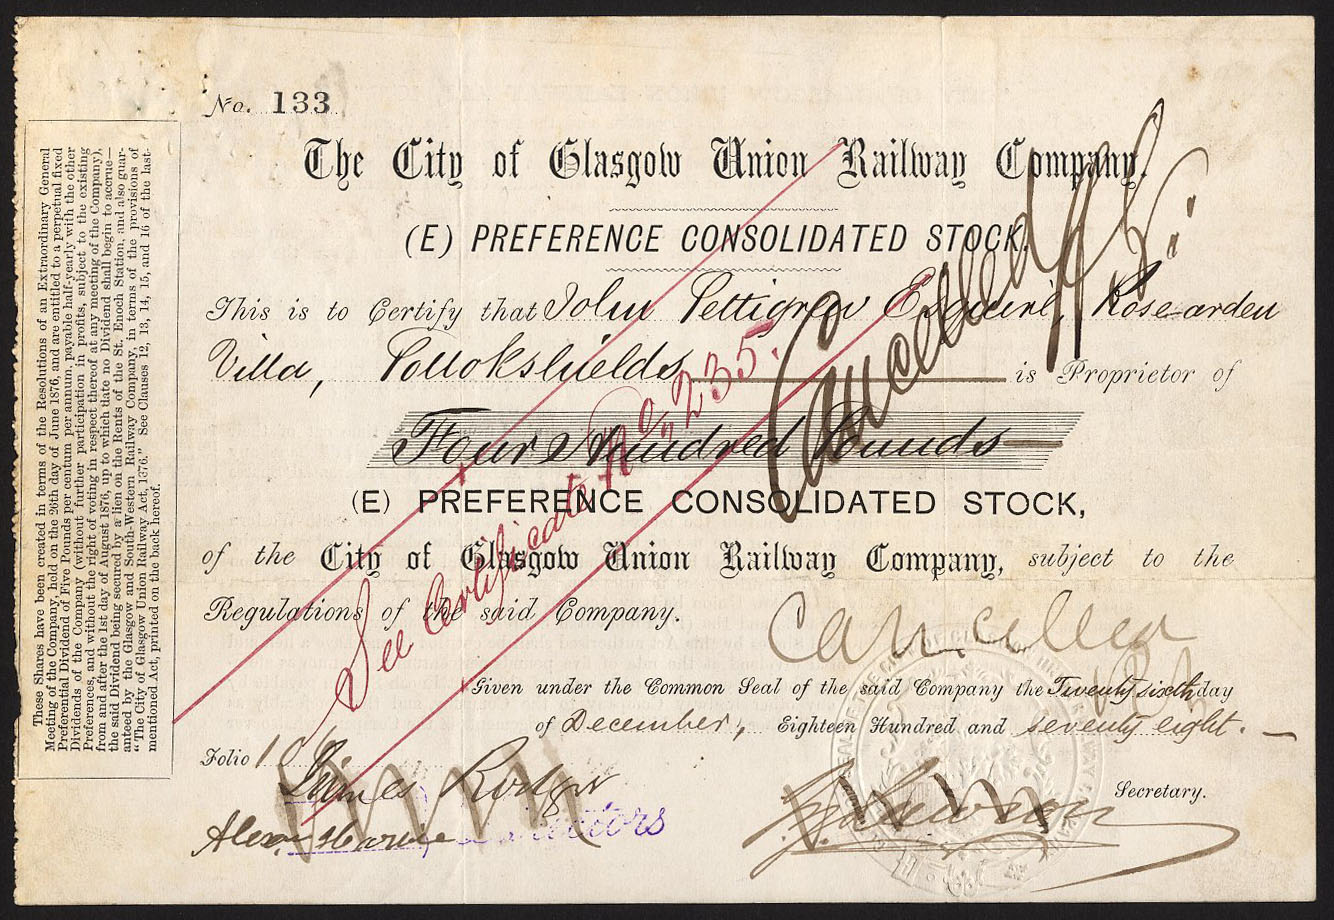 No. 133
The City of Glasgow Union Railway Company.
(E) PREFERENCE CONSOLIDATED STOCK.
This is to Certify that John Pettigrew Esquire, Rosearden
Villa, Pollokshields is Proprietor of
Four Hundred Pounds
(E) PREFERENCE CONSOLIDATED STOCK,
of the City of Glasgow Union Railway Company, subject to the
Regulations of the said Company.
Given under the Common Seal of the said Company the Twenty sixth day
of December, Eighteen Hundred and seventy eight.
Folio 10
James Rodger
Directors
Secretary.
See Certificate No. 235.
Cancelled
Cancelled
These Shares have been created in terms of the Resolutions of an Extraordinary General
Meeting of the Company, held on the 26th day of June 1876, and are entitled to a perpetual fixed
Preferential Dividend of Five Pounds per centum per annum, payable half-yearly with the other
Dividends of the Company (without further participation in profits, subject to the existing
Preferences, and without the right of voting in respect thereof at any meeting of the Company),
from and after the 1st day of August 1876, up to which date no Dividend shall begin to accrue—
the said Dividend being secured by a lien on the Rents of the St. Enoch Station, and also guar-
anteed by the Glasgow and South-Western Railway Company, in terms of the provisions of
"The City of Glasgow Union Railway Act, 1876." See Clauses 12, 13, 14, 15, and 16 of the last-
mentioned Act, printed on the back hereof.